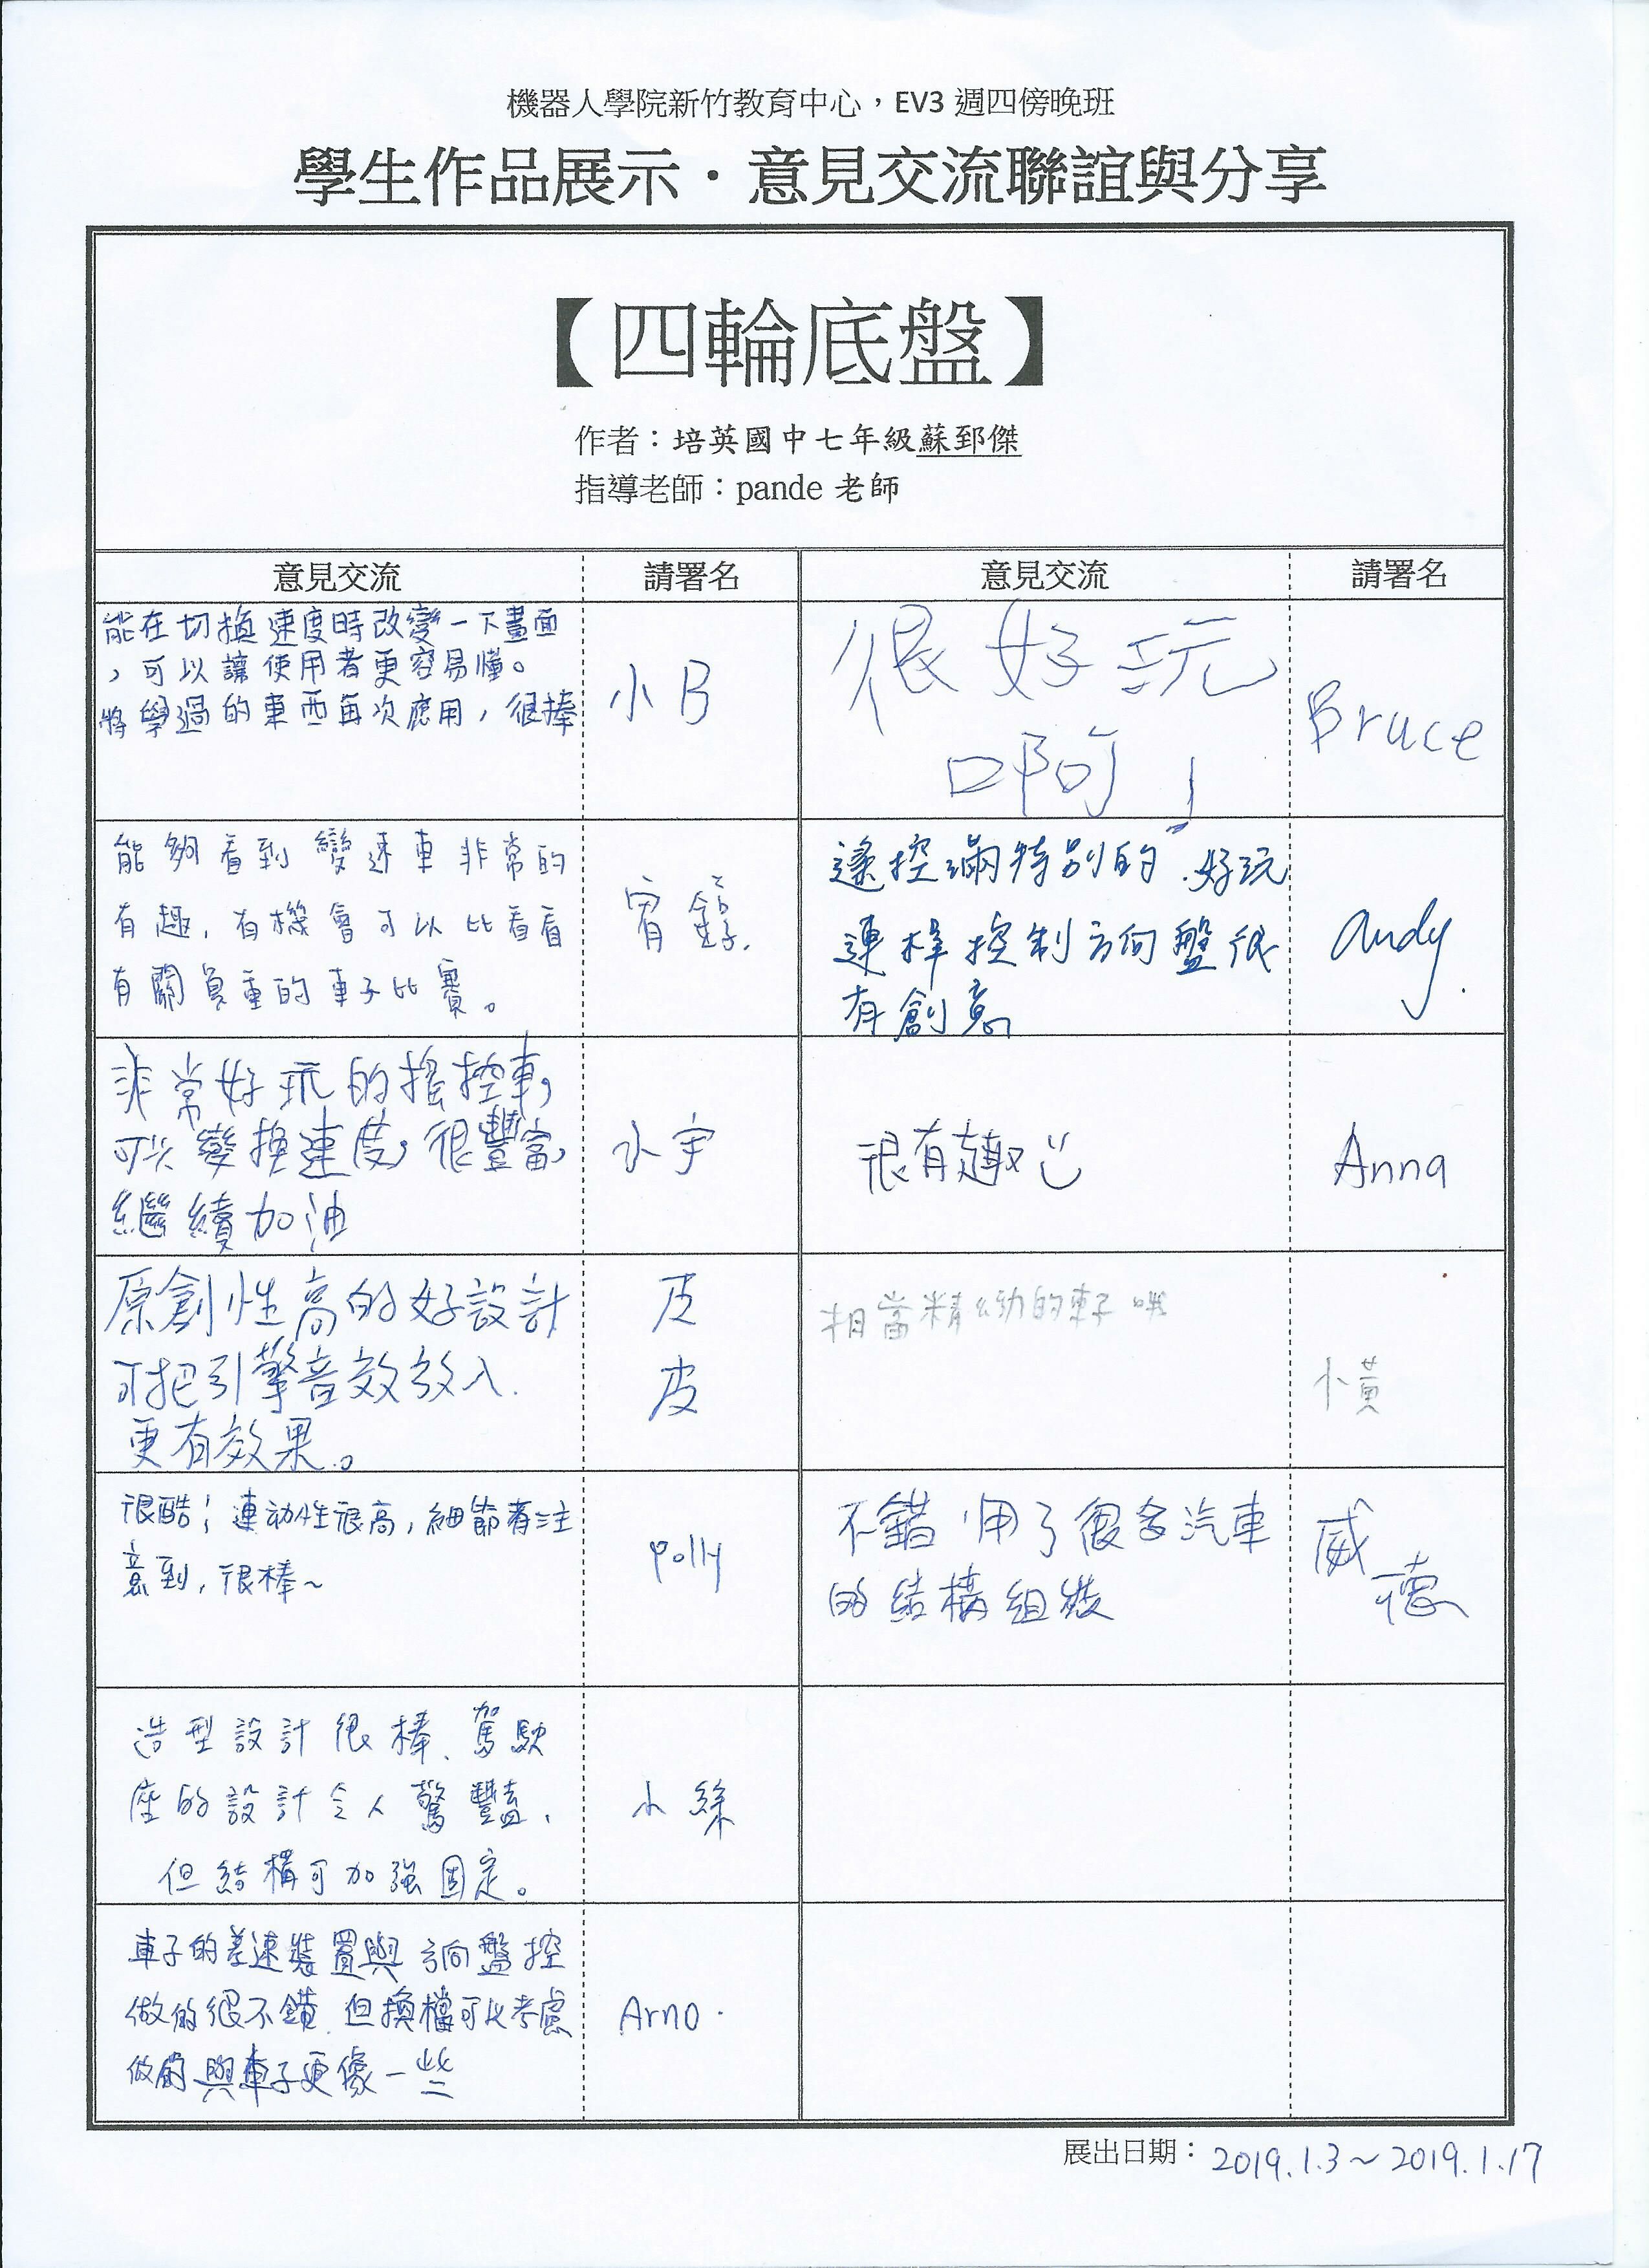 機器人學院新竹教育中心，EV3 週四傍晚班
學生作品展示・意見交流聯誼與分享
【四輪底盤】
作者：培英國中七年級蘇郅傑
指導老師：pande 老師
意見交流
請署名
意見交流
請署名
能在切換速度時改變一下畫面
，可以讓使用者更容易懂。
將學過的東西再次應用，很棒
小B
很好玩
啊！
Bruce
能夠看到變速車非常的
有趣，有機會可以比看看
有關負重的車子比賽。
宥錞
遙控滿特別的，好玩
連桿控制方向盤很
有創意
andy.
非常好玩的搖控車，
可以變換速度，很豐富，
繼續加油
小宇
很有趣
Anna
原創性高的好設計
可把引擎音效放入.
更有效果。
皮
皮
相當精幼的車子哦
小黃
很酷！連动性很高，細節有注
意到，很棒~
polly
不錯，用了很多汽車
的結構組裝
威
德
造型設計很棒、駕駛
座的設計令人驚豔，
但結構可加強固定。
小綠
車子的差速裝置與方向盤控
做的很不錯，但換檔可以考慮
做的與車子更像一些
Arno.
展出日期：2019.1.3～2019.1.17